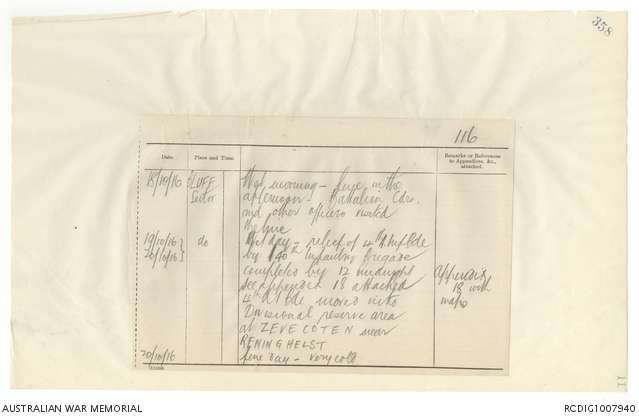 358
116
Date. Place and Time. Remarks or References to Appendices, &c., attached.
18/10/16 BLUFF Wet morning - fine in the
Sector afternoon - Battalion Cdrs.
and other officers visited
the line
19/10/16 } do Wet day - relief of 4th A Inf Bde
20/10/16 } by 140th Infantry Brigade
completed by 12 midnight
see appendix 18 attached Appendix
4th A I Bde moved into 18 with
Divisional reserve area maps
at ZEVECOTEN near
RENINGHELST
20/10/16 fine day - very cold
11
AUSTRALIAN WAR MEMORIAL RCDIG1007940